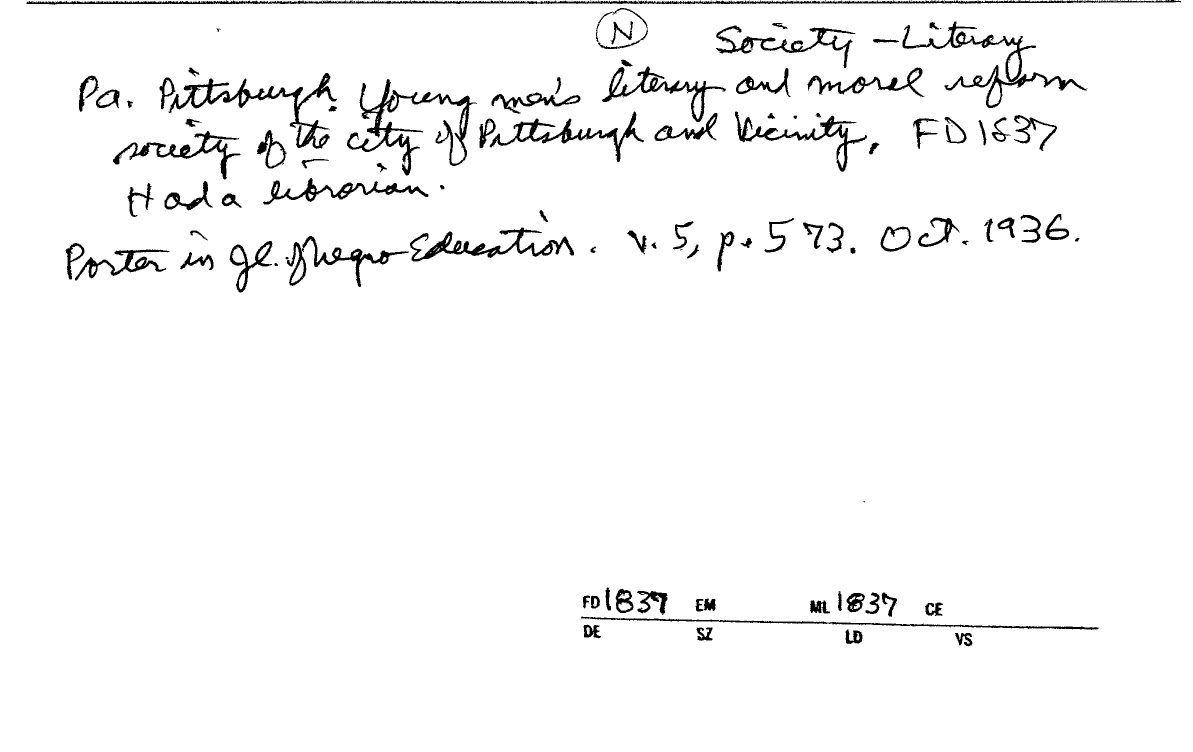 (N) Society - Literary
Pa. Pittsburgh. Young men's literary and moral reform
society of the city of Pittsburgh and Vicinity. FD 1837
Had a librarian.
Porter in Jl. of Negro Education. v. 5, p. 573. Oct. 1936.
FD 1837 EM ML 1837 CE
DE SZ LD VS